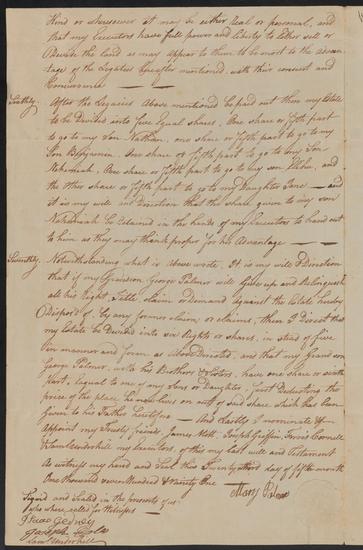 Kind or whatsoever it may be either Real or personal, and
that my Executors have full power and liberty to Either sell or
Devide the land as may appear to them to be most to the advan-
tage of the Legatees hereafter mentioned, with their consent and
Concurrence
Sixthly. After the Legacies Above mentioned be paid out then my Estate
to be Devided into five Equal shares, One share or fifth part
to go to my Son Nathan, one share or fifth part to go to my
Son Benjamin, One share or fifth part to go to my Son
Nehemiah, One share or fifth part to go to my son Elihu, and
the other share or fifth part to go to my Daughter Jane — and
it is my will and Direction that the share given to my son
Nehemiah be Retained in the hands of my Executors to hand out
to him as they may think proper for his Advantage
Seventhly. Notwithstanding what is above wrote, It is my will & Direction
that if my Grandson George Palmer will Give up and Relinquish
all his Right, Title claim or Demand against the Estate hereby
Disposed of, by any former claim or claims, then I Direct that
my Estate be Devided into six Rights or shares, in stead of five
in manner and form as above Directed, and that my Grandson
George Palmer, with his Brothers & Sisters, have one share or sixth
part, Equal to one of my Sons or Daughter, first Deducting the
price of the place he now lives on out of said share, which has been
given to his Father — And Lastly I nominate &
appoint my Trusty friends, James Mott, Joseph Griffin, Ferris Cornell
& Sam Underhill, my Executors, of this my last will and Testament
As witness my hand and Seal this Twenty day of fifth month
One thousand seven Hundred & Ninety One — Mary Palmer
Signed and Sealed in the presents of us
who where called for Witnesses
Isaac Gedney
Joseph
Sam Underhill